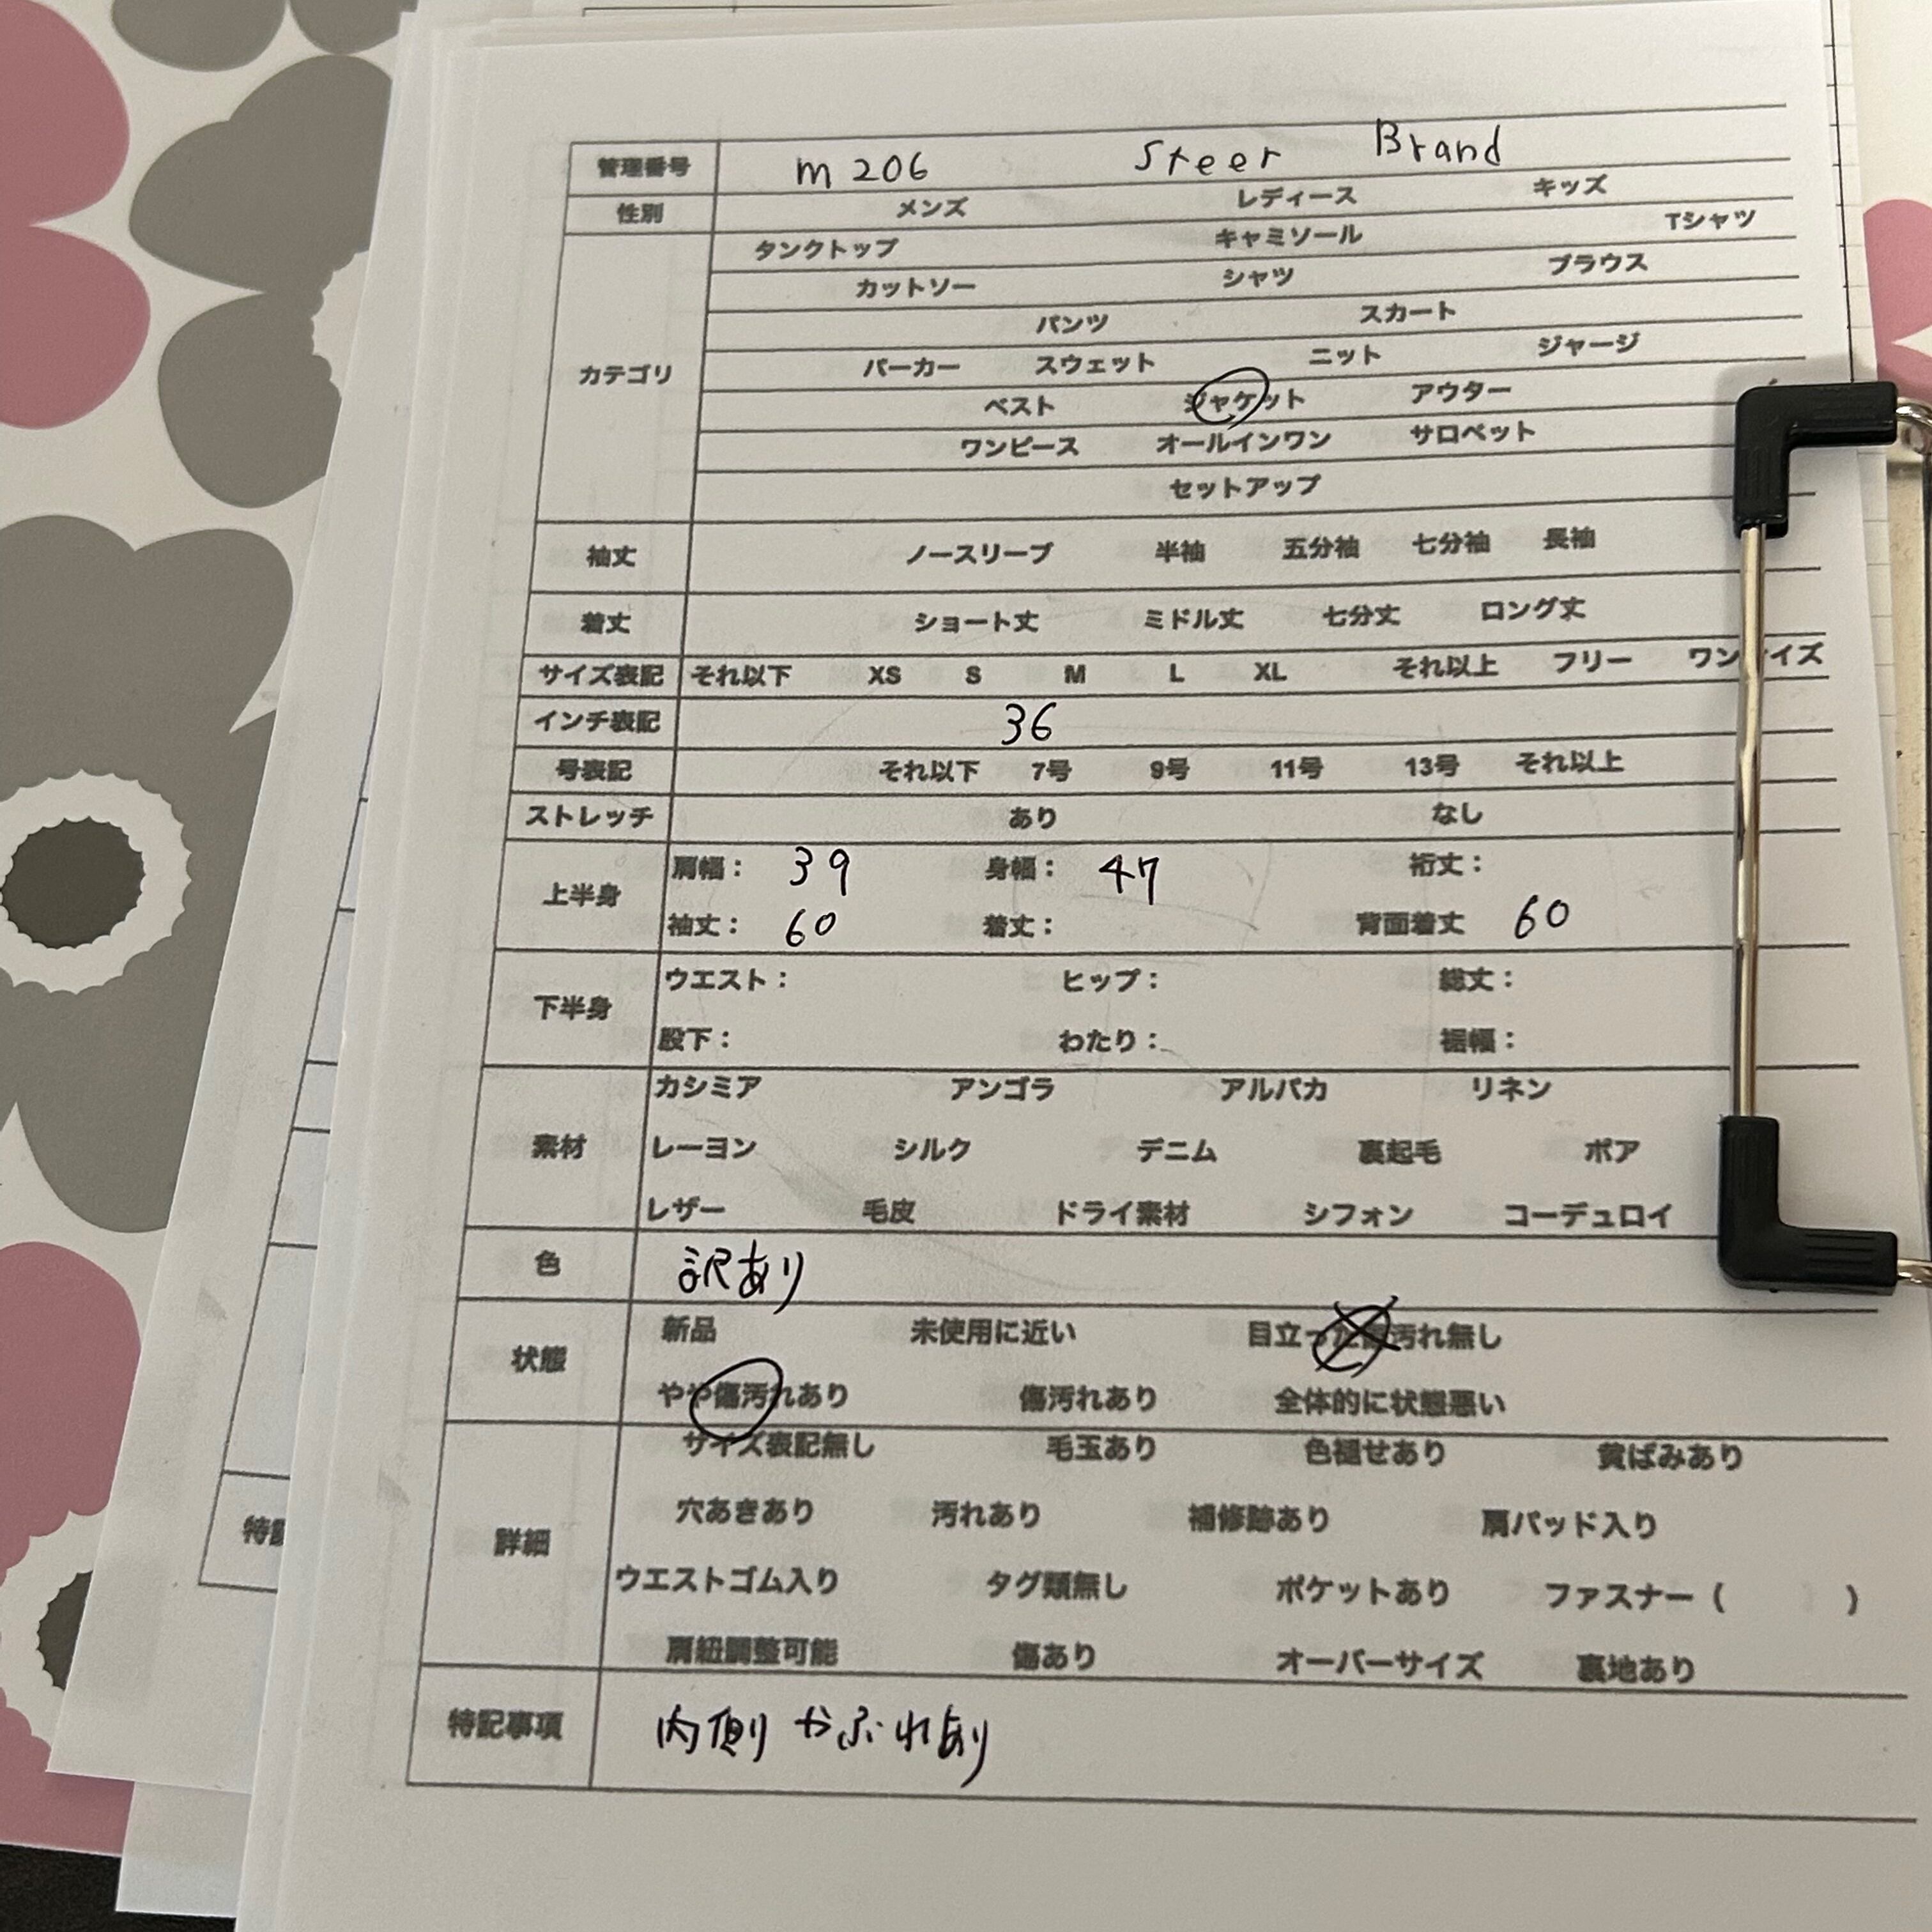 管理番号 m 206 Steer Brand
性別 メンズ レディース キッズ
カテゴリ
タンクトップ キャミソール Tシャツ
カットソー シャツ ブラウス
パンツ スカート
パーカー スウェット ニット ジャージ
ベスト ジャケット アウター
ワンピース オールインワン サロペット
セットアップ
袖丈 ノースリーブ 半袖 五分袖 七分袖 長袖
着丈 ショート丈 ミドル丈 七分丈 ロング丈
サイズ表記 それ以下 XS S M L XL それ以上 フリー ワンサイズ
インチ表記 36
号表記 それ以下 7号 9号 11号 13号 それ以上
ストレッチ あり なし
上半身
肩幅: 39 身幅: 47 裄丈:
袖丈: 60 着丈: 背面着丈 60
下半身
ウエスト: ヒップ: 総丈:
股下: わたり: 裾幅:
素材
カシミア アンゴラ アルパカ リネン
レーヨン シルク デニム 裏起毛 ボア
レザー 毛皮 ドライ素材 シフォン コーデュロイ
色 訳あり
状態
新品 未使用に近い 目立った傷汚れ無し
やや傷汚れあり 傷汚れあり 全体的に状態悪い
詳細
サイズ表記無し 毛玉あり 色褪せあり 黄ばみあり
穴あきあり 汚れあり 補修跡あり 肩パッド入り
ウエストゴム入り タグ類無し ポケットあり ファスナー( )
肩紐調整可能 傷あり オーバーサイズ 裏地あり
特記事項 内側 やぶれあり